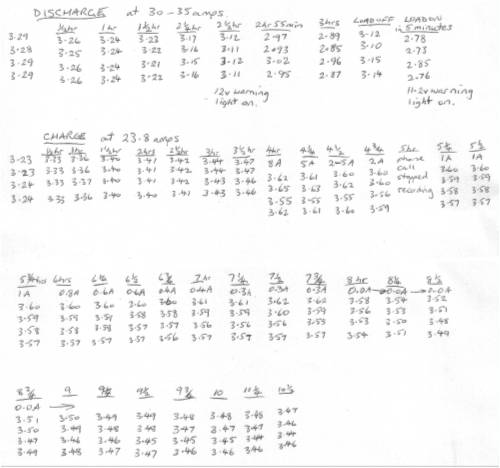 DISCHARGE at 30-35 amps.
½hr 1hr 1½hr 2¼hr 2½hr 2hr 55min 3hrs LOAD OFF LOAD ON in 5 minutes
3.29 3.26 3.24 3.23 3.17 3.12 2.97 2.89 3.12 2.78
3.28 3.25 3.24 3.22 3.16 3.11 2.93 2.85 3.10 2.73
3.29 3.26 3.24 3.21 3.15 3.12 3.02 2.96 3.15 2.85
3.29 3.26 3.24 3.22 3.16 3.11 2.95 2.87 3.14 2.76
12v warning light on. 11.2v warning light on.
CHARGE at 23.8 amps
½hr 1hr 1½hr 2hrs 2½hr 3hr 3½hrs 4hr 4¼ 4½ 4¾ 5hr 5¼ 5½
3.23 3.33 3.36 3.40 3.41 3.42 3.44 3.47 8A 5A 2-5A 2A phone 1A 1A
3.23 3.33 3.36 3.40 3.41 3.42 3.44 3.47 3.62 3.61 3.60 3.60 call 3.60 3.60
3.24 3.33 3.37 3.40 3.41 3.42 3.43 3.46 3.65 3.63 3.62 3.60 stopped 3.59 3.59
3.24 3.33 3.36 3.40 3.40 3.41 3.43 3.46 3.55 3.55 3.55 3.56 recording 3.58 3.58
3.62 3.61 3.60 3.59 3.57 3.57
5¾hrs 6hrs 6¼ 6½ 6¾ 7hr 7¼ 7½ 7¾ 8hr 8¼ 8½
1A 0.8A 0.6A 0.6A 0.4A 0.4A 0.3A 0.3A 0.3A 0.0A → 0.0A → 0.0A
3.60 3.60 3.60 3.60 3.60 3.61 3.61 3.62 3.62 3.58 3.54 3.52
3.59 3.59 3.59 3.58 3.58 3.59 3.59 3.60 3.59 3.56 3.53 3.51
3.58 3.58 3.58 3.57 3.57 3.56 3.56 3.56 3.55 3.53 3.50 3.48
3.57 3.57 3.57 3.57 3.56 3.57 3.57 3.57 3.57 3.54 3.51 3.49
8¾ 9 9¼ 9½ 9¾ 10 10¼ 10½
0.0A →
3.51 3.50 3.49 3.49 3.48 3.48 3.48 3.47
3.50 3.49 3.48 3.48 3.47 3.47 3.47 3.46
3.47 3.46 3.46 3.45 3.45 3.45 3.44 3.44
3.49 3.48 3.47 3.47 3.46 3.46 3.46 3.46